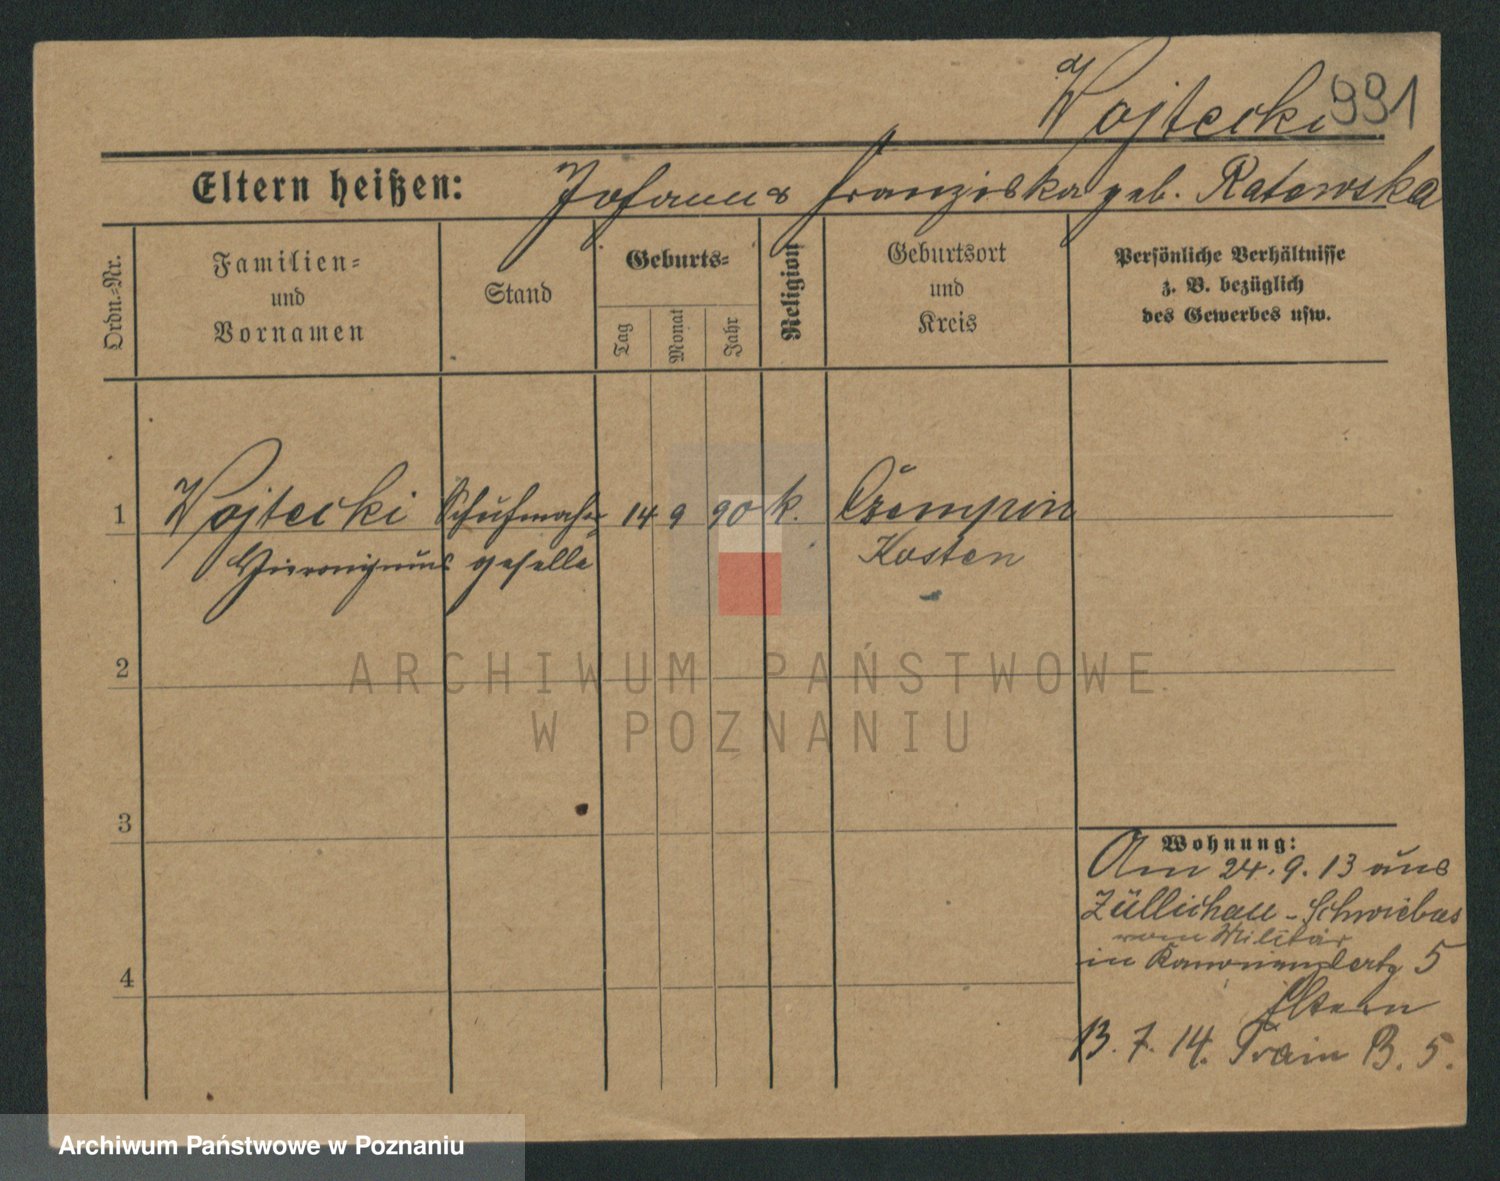 Wojtecki 991
Eltern heißen: Johann & Franziska geb. Ratawska
Ordn.-Nr.
Familien-
und
Vornamen
Stand
Geburts-
Tag
Monat
Jahr
Religion
Geburtsort
und
Kreis
Persönliche Verhältnisse
z. B. bezüglich
des Gewerbes usw.
1 Wojtecki Schuhmacher 14 9 90 k. Czempin
Hieronymus geselle Kosten
2
3
4
ARCHIWUM PAŃSTWOWE
W POZNANIU
Wohnung:
Am 24.9.13 aus
Züllichau - Schwiebus
vom Militär
in 5
Eltern
13. 7. 14. Train B. 5.
Archiwum Państwowe w Poznaniu